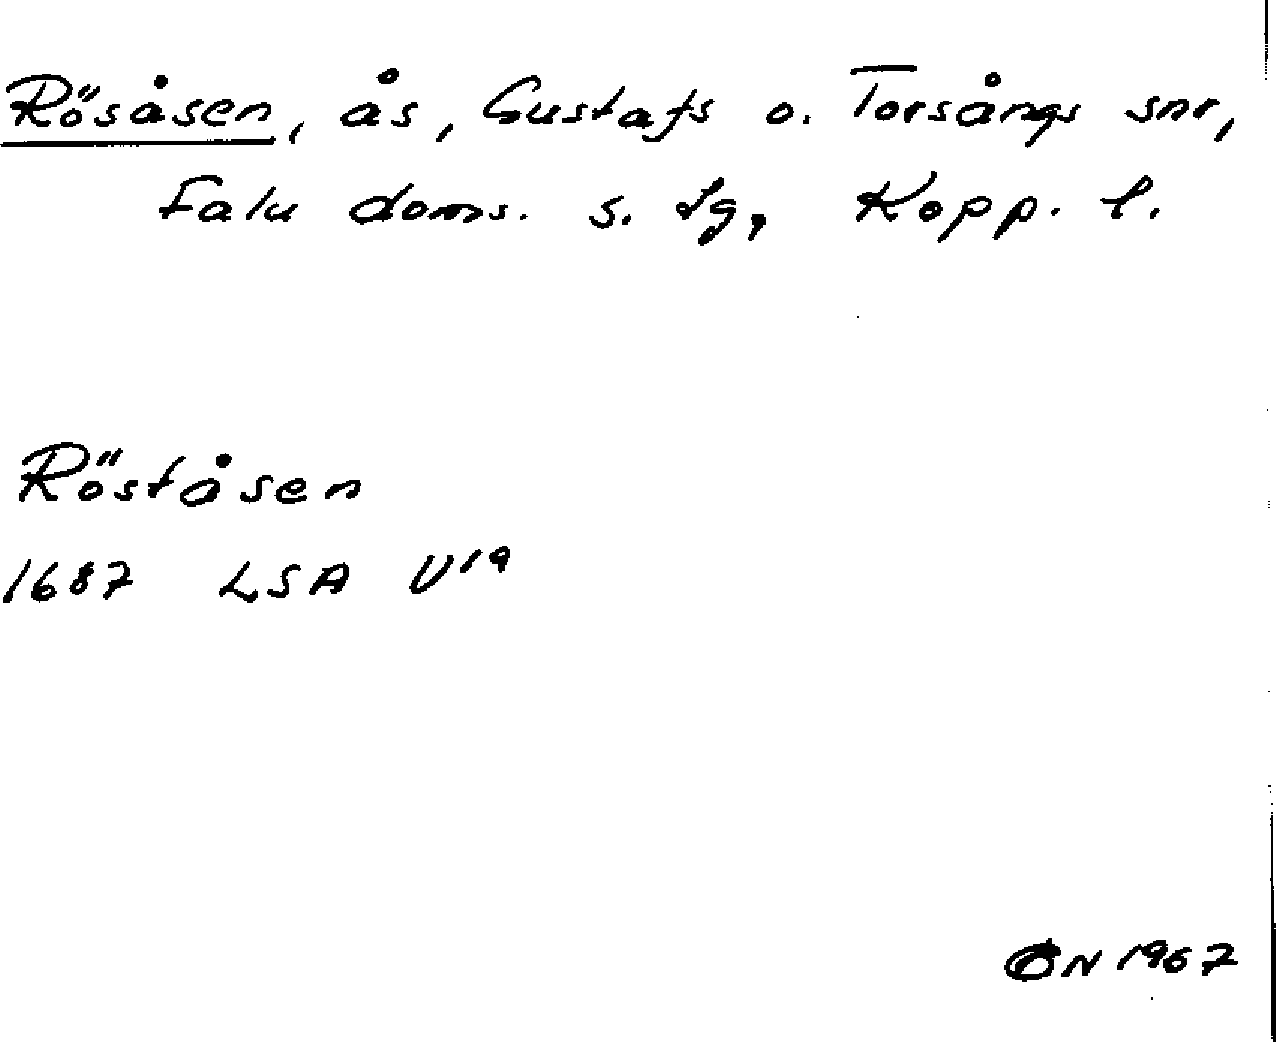 Rösåsen, ås, Gustafs o. Torsångs snr,
Falu doms. s. tg, Kopp. l.
Röståsen
1687 LSA U19
ÖN 1967